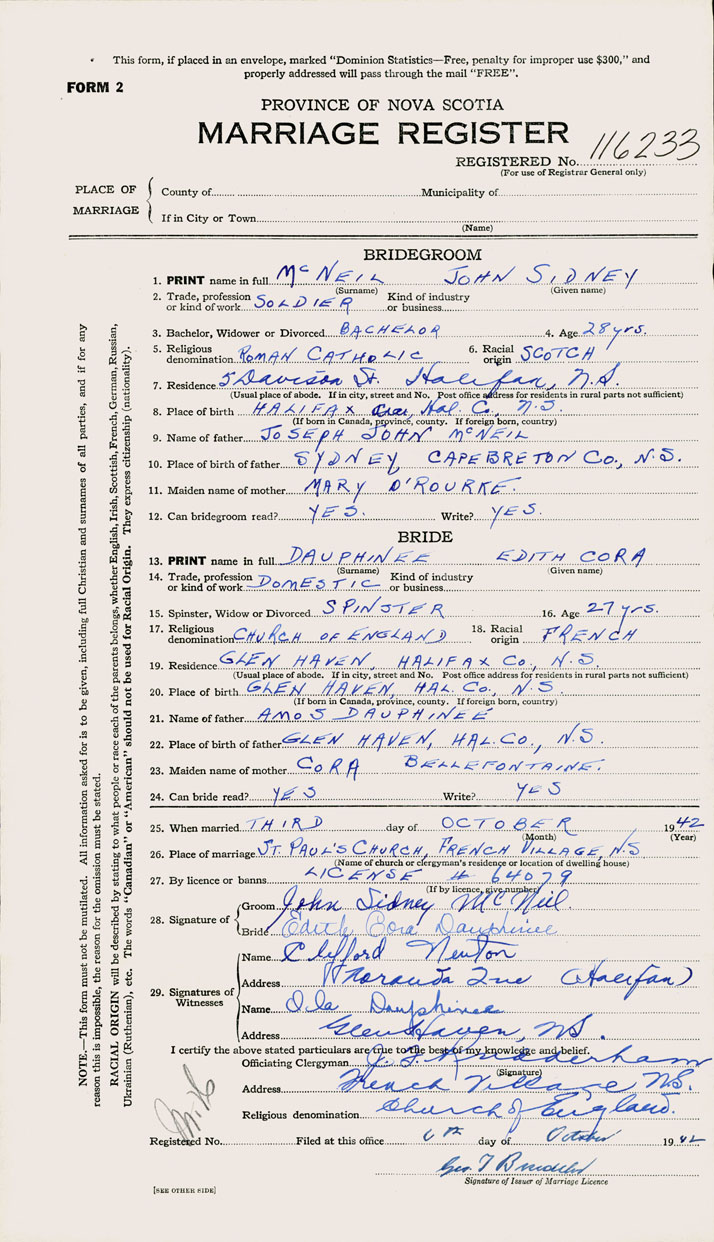 This form, if placed in an envelope, marked "Dominion Statistics—Free, penalty for improper use $300," and
properly addressed will pass through the mail "FREE".
FORM 2
PROVINCE OF NOVA SCOTIA
MARRIAGE REGISTER
REGISTERED No. 116233
(For use of Registrar General only)
PLACE OF MARRIAGE
County of Municipality of
If in City or Town
(Name)
BRIDEGROOM
1. PRINT name in full McNEIL JOHN SIDNEY
(Surname) (Given name)
2. Trade, profession or kind of work SOLDIER Kind of industry or business
3. Bachelor, Widower or Divorced BACHELOR 4. Age 28 yrs.
5. Religious denomination ROMAN CATHOLIC 6. Racial origin SCOTCH
7. Residence 5 Davison St. Halifax, N.S.
(Usual place of abode. If in city, street and No. Post office address for residents in rural parts not sufficient)
8. Place of birth HALIFAX Hal. Co., N.S.
(If born in Canada, province, county. If foreign born, country)
9. Name of father JOSEPH JOHN McNEIL
10. Place of birth of father SYDNEY CAPE BRETON Co., N.S.
11. Maiden name of mother MARY O'ROURKE.
12. Can bridegroom read? YES. Write? YES.
BRIDE
13. PRINT name in full DAUPHINEE EDITH CORA
(Surname) (Given name)
14. Trade, profession or kind of work DOMESTIC Kind of industry or business
15. Spinster, Widow or Divorced SPINSTER 16. Age 27 yrs.
17. Religious denomination CHURCH OF ENGLAND 18. Racial origin FRENCH
19. Residence GLEN HAVEN, HALIFAX Co., N.S.
(Usual place of abode. If in city, street and No. Post office address for residents in rural parts not sufficient)
20. Place of birth GLEN HAVEN, HAL. Co., N.S.
(If born in Canada, province, county. If foreign born, country)
21. Name of father AMOS DAUPHINEE
22. Place of birth of father GLEN HAVEN, HAL. CO., N.S.
23. Maiden name of mother CORA BELLEFONTAINE.
24. Can bride read? YES Write? YES
25. When married THIRD day of OCTOBER 1942
(Month) (Year)
26. Place of marriage ST. PAUL'S CHURCH, FRENCH VILLAGE, N.S
(Name of church or clergyman's residence or location of dwelling house)
27. By licence or banns LICENSE # 64079
(If by licence, give number)
28. Signature of
Groom John Sidney McNeil.
Bride Edith Cora Dauphinee
29. Signatures of Witnesses
Name Clifford Newton
Address (Halifax)
Name Ola Dauphinee
Address Glen Haven, N.S.
I certify the above stated particulars are true to the best of my knowledge and belief.
Officiating Clergyman
(Signature)
Address French Village N.S.
Religious denomination Church of England.
Registered No. Filed at this office 6th day of October 1942
Signature of Issuer of Marriage Licence
[SEE OTHER SIDE]
NOTE.—This form must not be mutilated. All information asked for is to be given, including full Christian and surnames of all parties, and if for any
reason this is impossible, the reason for the omission must be stated.
RACIAL ORIGIN will be described by stating to what people or race each of the parents belongs, whether English, Irish, Scottish, French, German, Russian,
Ukrainian (Ruthenian), etc. The words "Canadian" or "American" should not be used for Racial Origin. They express citizenship (nationality).